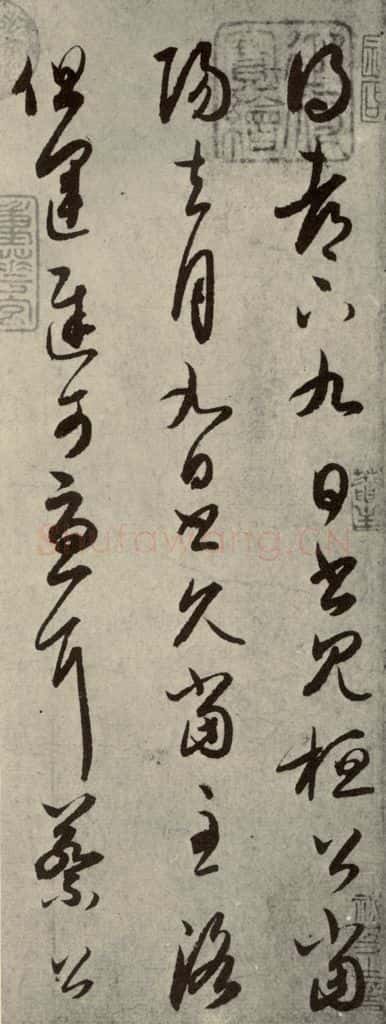 得都下九日書見桓公當
陽去月九日書久當至洛
但運遲可憂耳蔡公
Shufawang.CN